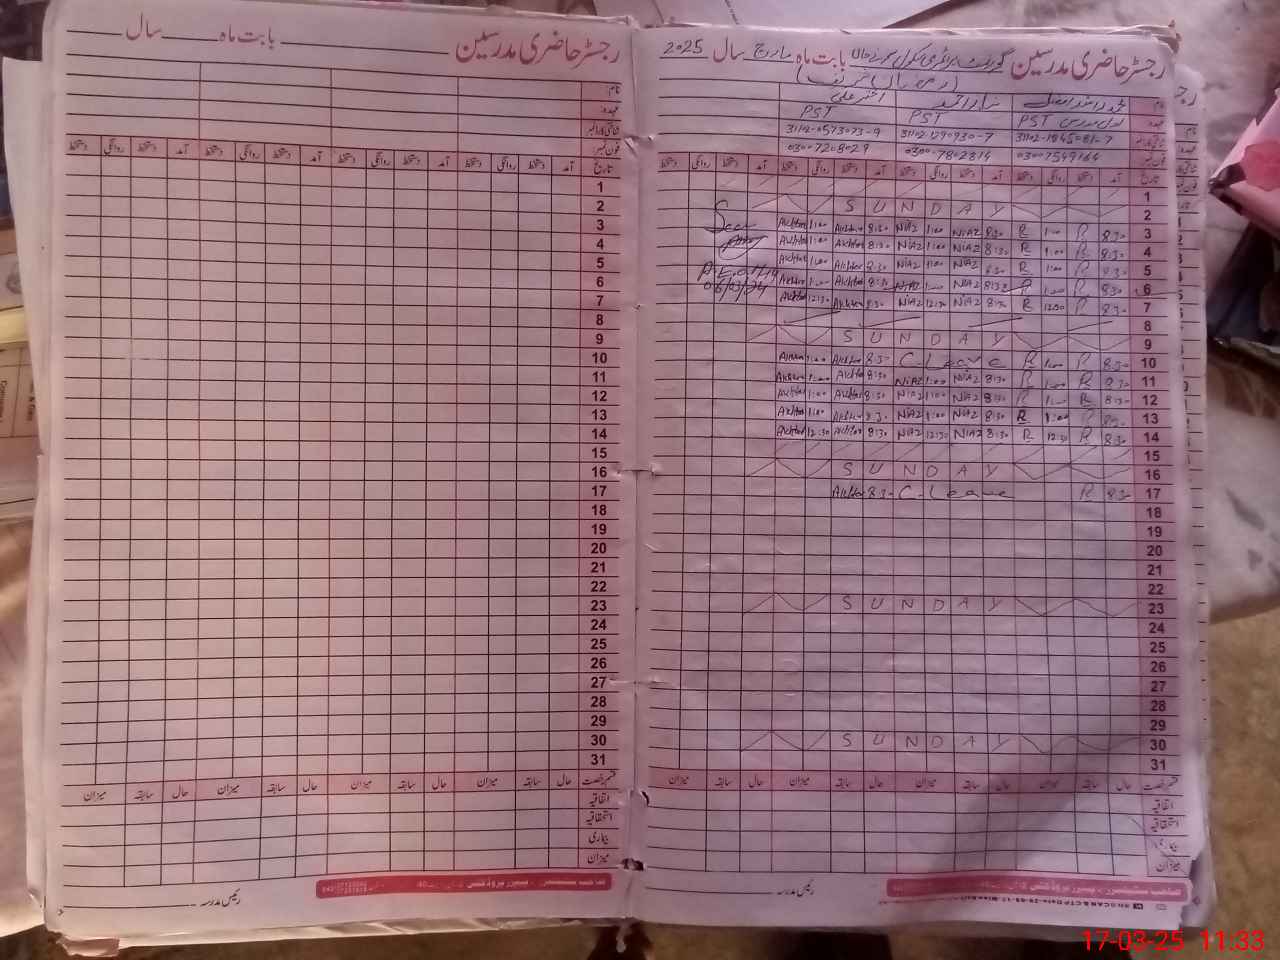 رجسٹر حاضری مدرسین بابت ماہ سال
نام:
عہدہ:
شناختی کارڈ نمبر
فون نمبر:
تاریخ آمد دستخط روانگی دستخط آمد دستخط روانگی دستخط آمد دستخط روانگی دستخط آمد دستخط روانگی دستخط
1
2
3
4
5
6
7
8
9
10
11
12
13
14
15
16
17
18
19
20
21
22
23
24
25
26
27
28
29
30
31
قسم رخصت حال سابقہ میزان حال سابقہ میزان حال سابقہ میزان حال سابقہ میزان
اتفاقیہ
استحقاقیہ
بیماری
میزان
رئیس مدرسہ
رجسٹر حاضری مدرسین گورنمنٹ پرائمری سکول بابت ماہ مارچ سال 2025
نام نیاز احمد اختر علی
عہدہ PST PST PST
31102-1845081-7 31102-1290930-7 31102-0573073-9
0300-7549164 0300-7802814 0300-7208029
تاریخ آمد دستخط روانگی دستخط آمد دستخط روانگی دستخط آمد دستخط روانگی دستخط آمد دستخط روانگی دستخط
1
2 SUNDAY
3 8:30 R 1:00 R 8:30 NIAZ 1:00 NIAZ 8:30 Akhtar 1:00 Akhtar
4 8:30 R 1:00 R 8:30 NIAZ 1:00 NIAZ 8:30 Akhtar 1:00 Akhtar
5 8:30 R 1:00 R 8:30 NIAZ 1:00 NIAZ 8:30 Akhtar 1:00 Akhtar
6 8:30 R 1:00 R 8:30 NIAZ 1:00 NIAZ 8:30 Akhtar 1:00 Akhtar
7 8:30 R 12:30 R 8:30 NIAZ 12:30 NIAZ 8:30 Akhtar 12:30 Akhtar
8
9 SUNDAY
10 8:30 R 1:00 R C Leave 8:30 Akhtar 1:00 Akhtar
11 8:30 R 1:00 R 8:30 NIAZ 1:00 NIAZ 8:30 Akhtar 1:00 Akhtar
12 8:30 R 1:00 R 8:30 NIAZ 1:00 NIAZ 8:30 Akhtar 1:00 Akhtar
13 8:30 R 1:00 R 8:30 NIAZ 1:00 NIAZ 8:30 Akhtar 1:00 Akhtar
14 8:30 R 12:30 R 8:30 NIAZ 12:30 NIAZ 8:30 Akhtar 12:30 Akhtar
15
16 SUNDAY
17 8:30 R C-Leave 8:30 Akhtar
18
19
20
21
22
23 SUNDAY
24
25
26
27
28
29
30 SUNDAY
31
قسم رخصت حال سابقہ میزان حال سابقہ میزان حال سابقہ میزان حال سابقہ میزان
اتفاقیہ
استحقاقیہ
بیماری
میزان
رئیس مدرسہ
17-03-25 11:33